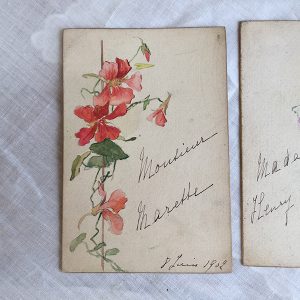 Monsieur
Marette
8 Juin 1908
Mada
Henry